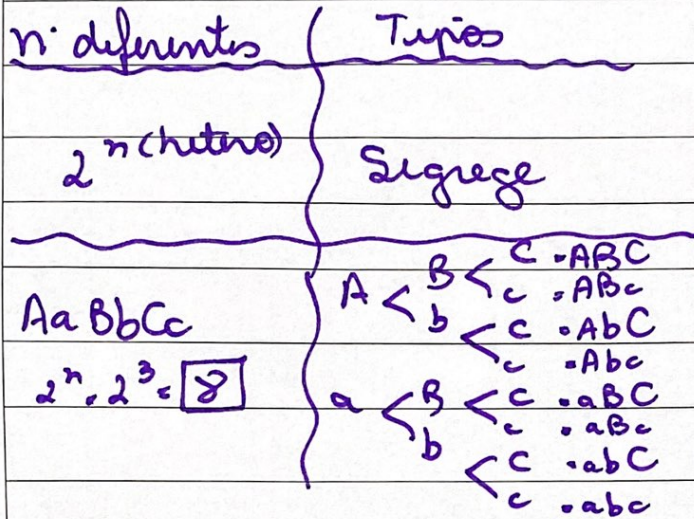 nº diferentes Tipos
2^n(hetero) Segrege
AaBbCc
2^n = 2^3 = 8
A < B < C • ABC
c • ABc
b < C • AbC
c • Abc
a < B < C • aBC
c • aBc
b < C • abC
c • abc